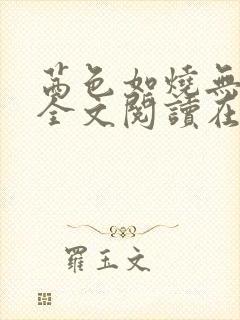 茜色如燒無
全文閱讀在
羅玉文